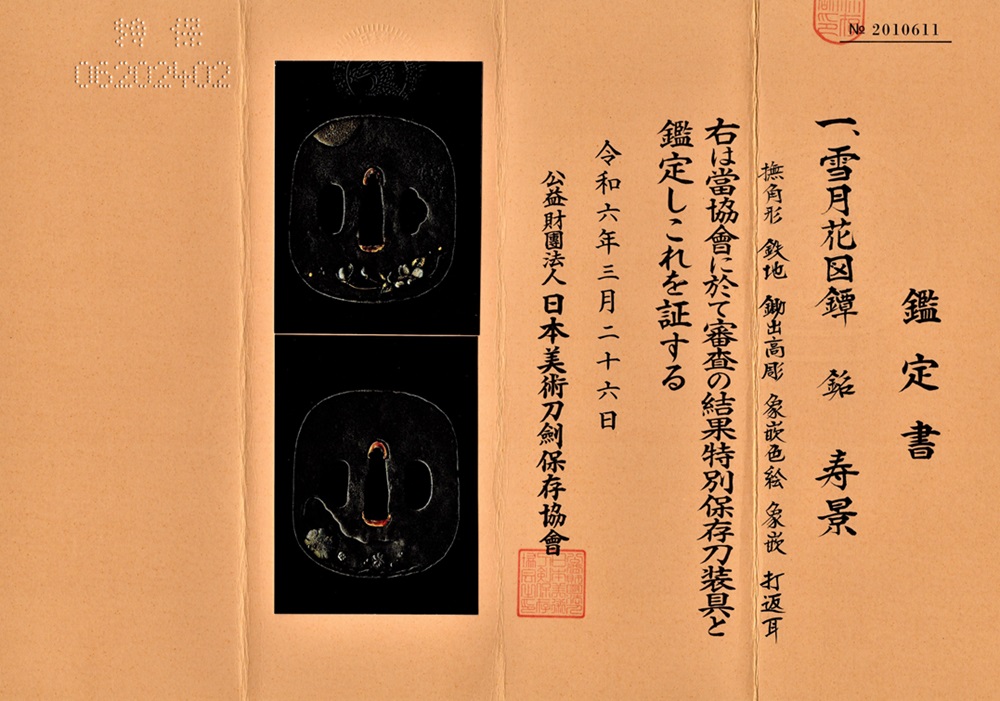 № 2010611
鑑定書
一、雪月花図鐔 銘 寿景
撫角形 鉄地 鋤出高彫 象嵌色絵 象嵌 打返耳
右は當協會に於て審査の結果特別保存刀装具と
鑑定しこれを証する
令和六年三月二十六日
公益財團法人 日本美術刀劍保存協會
特保
06202402